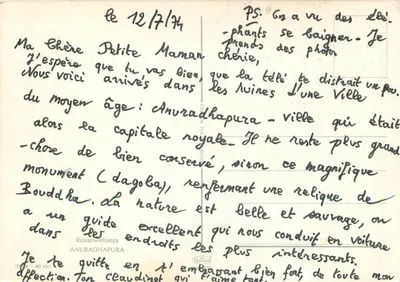 le 12/7/74
PS. On a vu des élé-
-phants se baigner. Je
prends des photos
Ma Chère Petite Maman chérie,
J'espère que tu vas bien, que la télé te distrait un peu.
Nous voici arrivés dans les ruines d'une ville
du moyen âge : Anuradhapura - ville qui était
alors la capitale royale. Il ne reste plus grand
-chose de bien conservé, sinon ce magnifique
monument (dagoba), renfermant une relique de
Bouddha. La nature est belle et sauvage, on
a un guide excellent qui nous conduit en voiture
dans les endroits les plus intéressants.
Ruvanweliseya
ANURADHAPURA
Je te quitte en t'embrassant bien fort, de toute mon
affection. Ton Claudinet qui t'aime tant.